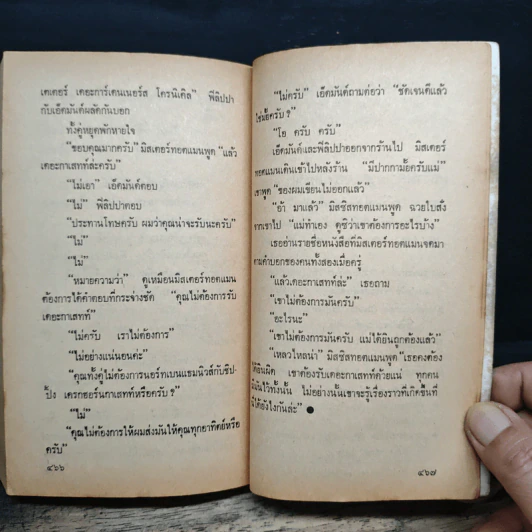 เตเตอร์ เดอะการ์เดนเนอร์ส โครนิเคิล" ฟิลิปปา
กับเอ็ดมันด์ผลัดกันบอก
ทั้งคู่หยุดพักหายใจ
"ขอบคุณมากครับ" มิสเตอร์ทอดแมนพูด "แล้ว
เดอะกาเสทท์ล่ะครับ"
"ไม่เอา" เอ็ดมันด์ตอบ
"ไม่" ฟิลิปปาตอบ
"ประทานโทษครับ ผมว่าคุณน่าจะรับนะครับ"
"ไม่"
"ไม่"
"หมายความว่า" ดูเหมือนมิสเตอร์ทอดแมน
ต้องการได้คำตอบที่กระจ่างชัด "คุณไม่ต้องการรับ
เดอะกาเสทท์"
"ไม่ครับ เราไม่ต้องการ"
"ไม่อย่างแน่นอนค่ะ"
"คุณทั้งคู่ไม่ต้องการนอร์ทเบนแธมนิวส์กับชิป-
ปิ้ง เคลกฮอร์นกาเสทท์หรือครับ?"
"ไม่"
"คุณไม่ต้องการให้ผมส่งมันให้คุณทุกอาทิตย์หรือ
ครับ"
๔๖๖
"ไม่ครับ" เอ็ดมันด์ถามต่อว่า "ชัดเจนดีแล้ว
ใช่มั้ยครับ?"
"โอ ครับ ครับ"
เอ็ดมันด์และฟิลิปปาออกจากร้านไป มิสเตอร์
ทอดแมนเดินเข้าไปหลังร้าน "มีปากกามั้ยครับแม่"
เขาพูด "ของผมเขียนไม่ออกแล้ว"
"อ้า มาแล้ว" มิสซิสทอดแมนพูด ฉวยใบสั่ง
จากเขาไป "แม่ทำเอง ดูซิว่าเขาต้องการอะไรบ้าง"
เธออ่านรายชื่อหนังสือที่มิสเตอร์ทอดแมนจดมา
ตามคำบอกของคนทั้งสองเมื่อครู่
"แล้วเดอะกาเสทท์ล่ะ" เธอถาม
"เขาไม่ต้องการมันครับ"
"อะไรนะ"
"เขาไม่ต้องการมันครับ แม่ได้ยินถูกต้องแล้ว"
"เหลวไหลน่า" มิสซิสทอดแมนพูด "เธอคงต้อง
ได้ยินผิด เขาต้องรับเดอะกาเสทท์ด้วยแน่ ทุกคน
มันไว้ทั้งนั้น ไม่อย่างนั้นเขาจะรู้เรื่องราวที่เกิดขึ้นที่
ได้ยังไงกันล่ะ" ●
๔๖๗